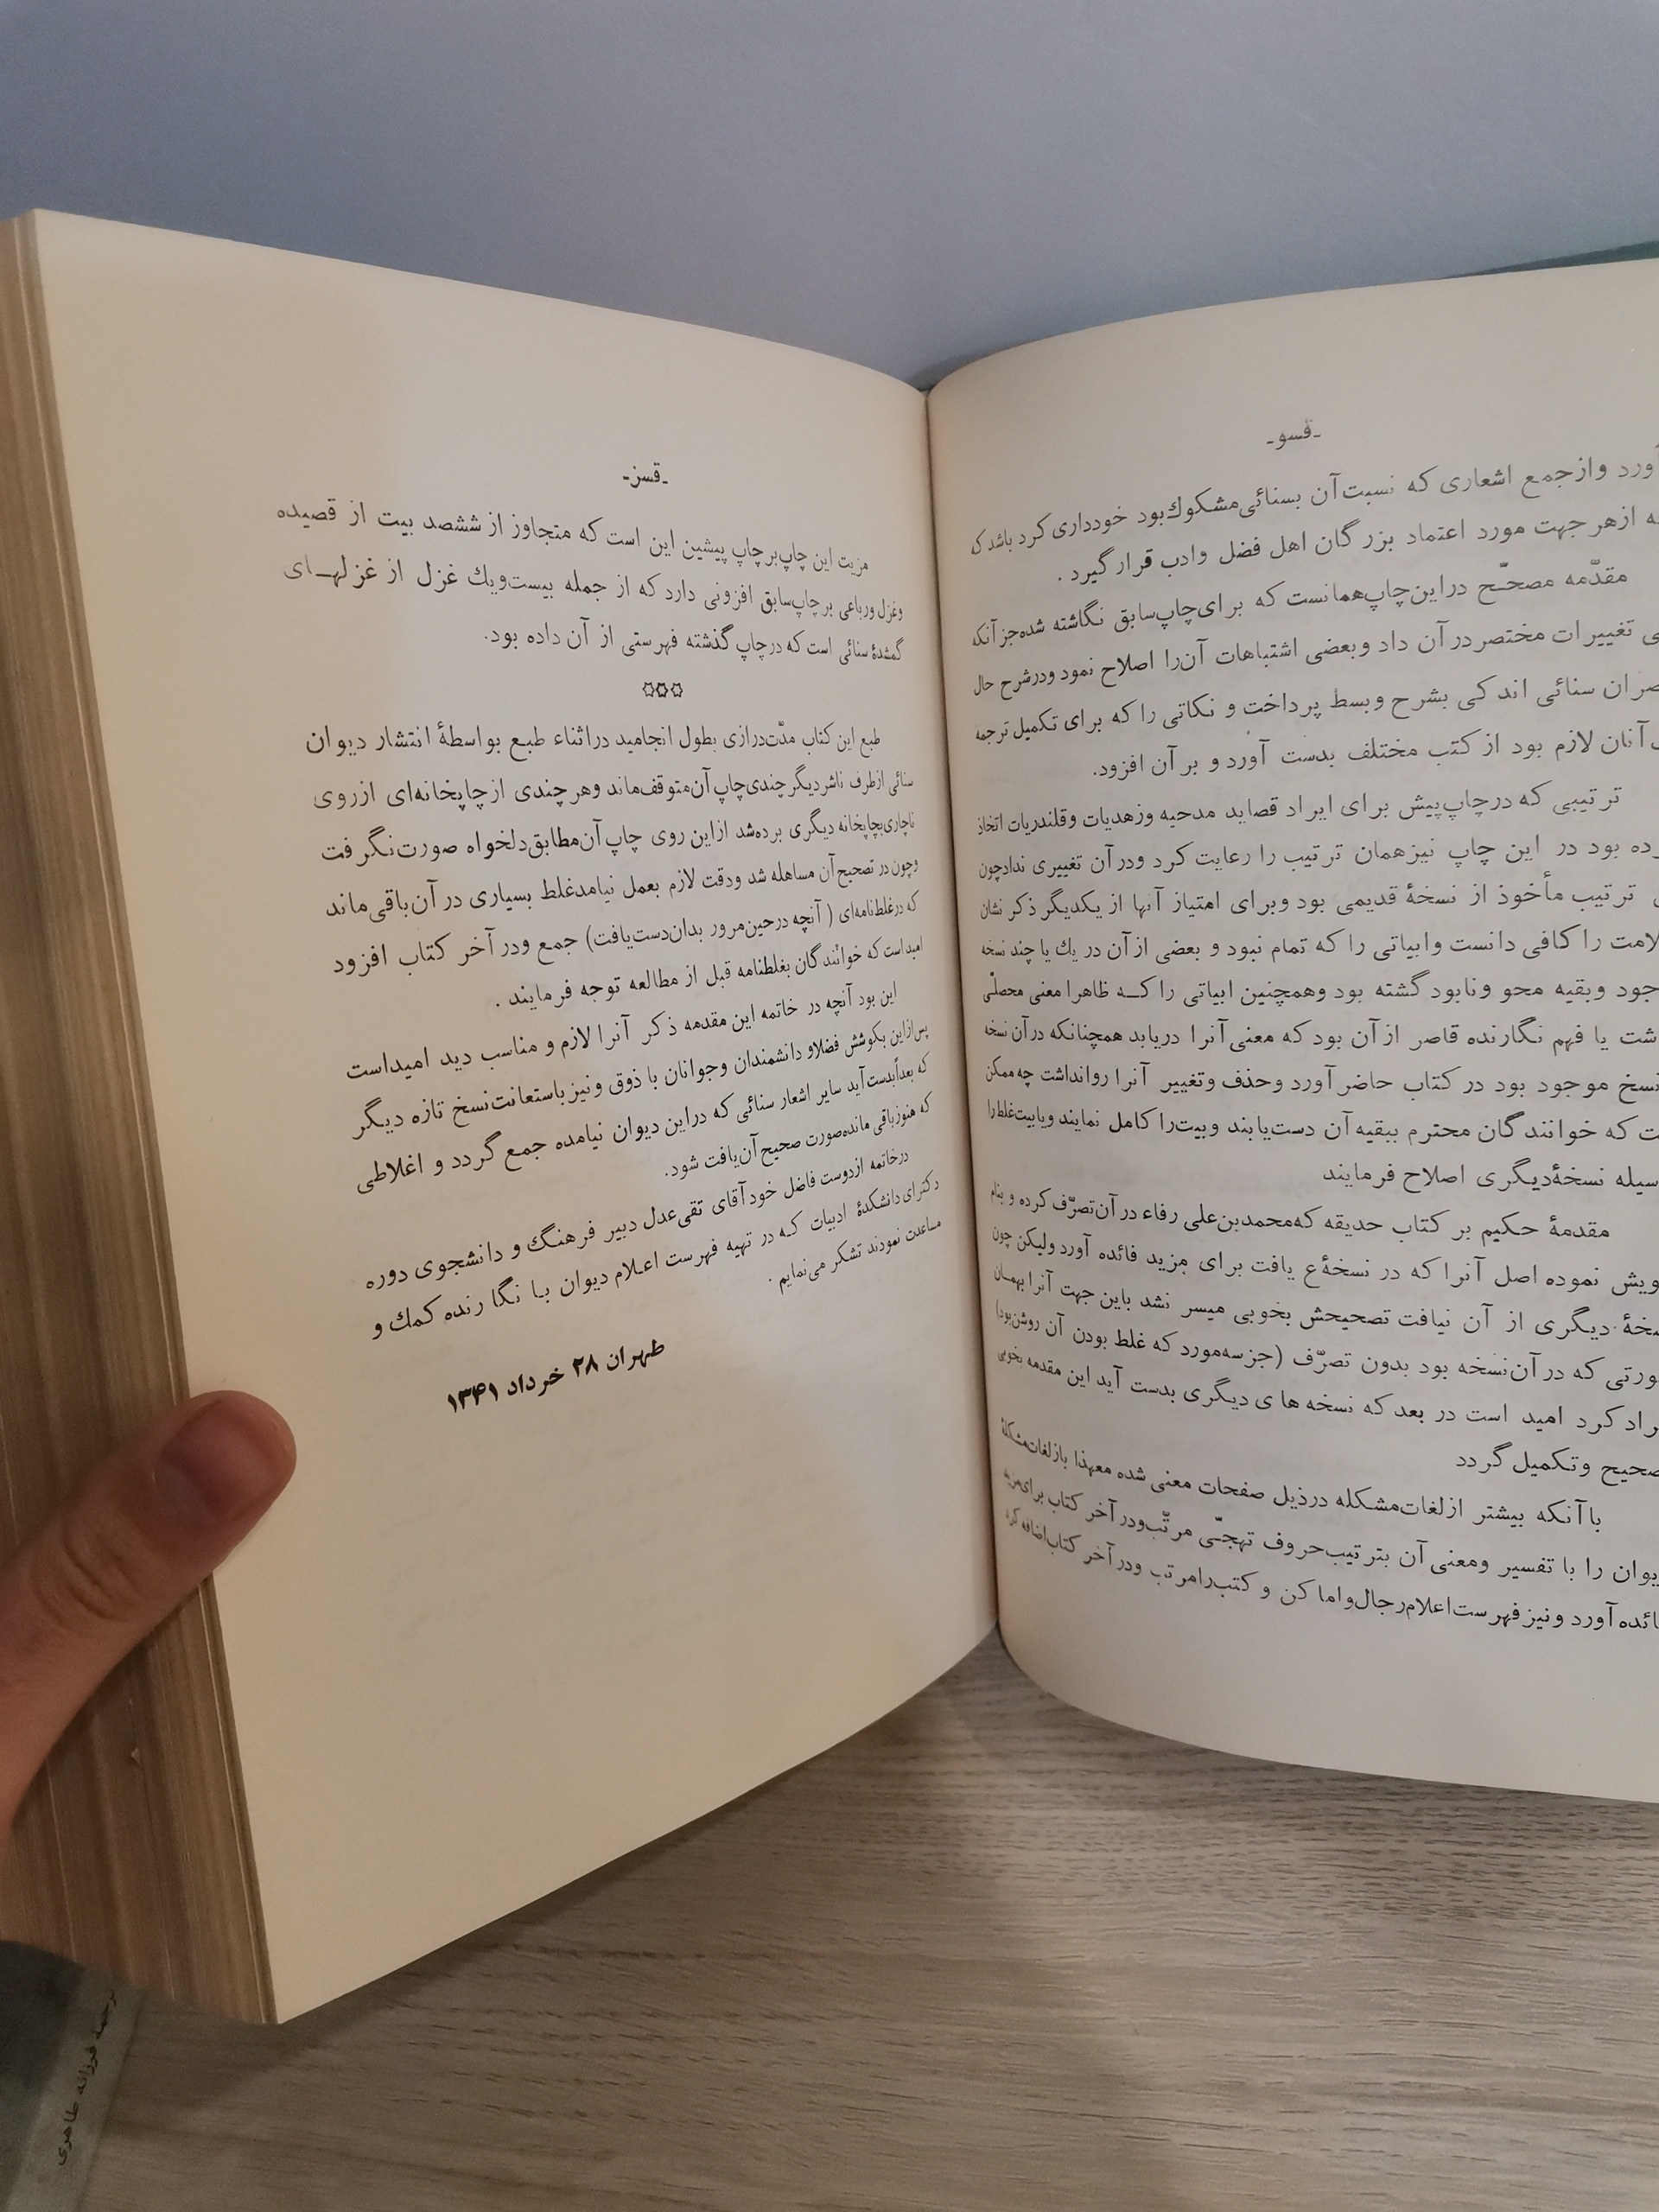 ـقسو‌ـ
آورد وازجمع اشعاری که نسبت‌آن بسنائی‌مشکوك‌بود خودداری کرد باشد که
ازهرجهت مورد اعتماد بزرگان اهل فضل وادب قرارگیرد .
مقدّمه مصحّح دراین‌چاپ‌همانست که برای‌چاپ‌سابق نگاشته شده‌جزآنکه
تغییرات مختصردرآن داد وبعضی اشتباهات آن‌را اصلاح نمود ودرشرح حال
سنائی اندکی بشرح وبسط پرداخت و نکاتی را که برای تکمیل ترجمه
آنان لازم بود از کتب مختلف بدست آورد و بر آن افزود.
ترتیبی که درچاپ‌پیش برای ایراد قصاید مدحیه وزهدیات وقلندریات اتخاذ
بود در این چاپ نیزهمان ترتیب را رعایت کرد ودرآن تغییری ندادچون
ترتیب مأخوذ از نسخهٔ قدیمی بود وبرای امتیاز آنها از یکدیگر ذکر نشان
را کافی دانست وابیاتی را که تمام نبود و بعضی ازآن در یك یا چند نسخه
وبقیه محو ونابود گشته بود وهمچنین ابیاتی را کــه ظاهرا معنی محصلّی
یا فهم نگارنده قاصر ازآن بود که معنی‌آنرا دریابد همچنانکه درآن نسخه
نسخ موجود بود در کتاب حاضرآورد وحذف وتغییر آنرا روانداشت چه‌ممکن
که خوانندگان محترم ببقیه‌آن دست‌یابند وبیت‌را کامل نمایند ویابیت‌غلط‌را
نسخهٔ‌دیگری اصلاح فرمایند
مقدمهٔ حکیم بر کتاب حدیقه که‌محمدبن‌علی رفاء درآن‌تصرّف کرده و بنام
نموده اصل آنرا که در نسخهٔ‌ع یافت برای مزید فائده آورد ولیکن چون
دیگری از آن نیافت تصحیحش بخوبی میسر نشد باین جهت آنرا بهمـان
که درآن‌نسخه بود بدون تصرّف (جزسه‌مورد که غلط بودن آن روشن‌بود)
کرد امید است در بعد که نسخه های دیگری بدست آید این مقدمه بخوبی
وتکمیل گردد
باآنکه بیشتر ازلغات‌مشکله درذیل صفحات معنی شده معهذا بازلغات‌مشکلهٔ
را با تفسیر ومعنی‌آن بترتیب‌حروف تهجّی مرتّب‌ودرآخر کتاب برای‌مزید
آورد ونیز فهرست‌اعلام‌رجال‌واماکن و کتب‌رامرتب ودرآخر کتاب‌اضافه کرد
ـقسز‌ـ
مزیت این چاپ‌برچاپ پیشین این است که متجاوز از ششصد بیت از قصیده
وغزل ورباعی برچاپ‌سابق افزونی دارد که از جمله بیست‌ویك غزل از غزلهــای
گمشدهٔ سنائی است که درچاپ گذشته فهرستی از آن داده بود.
✡✡✡
طبع این کتاب مدّت‌درازی بطول انجامید دراثناء طبع بواسطهٔ انتشار دیوان
سنائی ازطرف ناشردیگرچندی‌چاپ‌آن‌متوقف‌ماند وهرچندی ازچاپخانه‌ای ازروی
ناچاری‌بچاپخانه دیگری برده‌شد ازاین روی چاپ‌آن‌مطابق‌دلخواه صورت‌نگرفت
وچون در تصحیح‌آن مساهله شد ودقت لازم بعمل نیامدغلط بسیاری در آن‌باقی‌ماند
که درغلط‌نامه‌ای ( آنچه درحین‌مرور بدان‌دست‌یافت) جمع ودر آخر کتاب افزود
امیداست که خوانندگان بغلطنامه قبل از مطالعه توجه فرمایند .
این بود آنچه در خاتمه این مقدمه ذکر آنرا لازم و مناسب دید امیداست
پس‌ازاین بکوشش فضلاو دانشمندان وجوانان با ذوق ونیز باستعانت‌نسخ تازه دیگر
که بعدأبدست‌آید سایر اشعار سنائی که دراین دیوان نیامده جمع گردد و اغلاطی
که هنوزباقی مانده‌صورت صحیح‌آن‌یافت شود.
درخاتمه ازدوست فاضل خود آقای تقی‌عدل دبیر فرهنگ و دانشجوی دوره
دکترای دانشکدهٔ ادبیات کـه در تهیه فهرست اعـلام دیوان بـا نگا رنده کمك و
مساعدت نمودند تشکر می‌نمایم .
طهران ۲۸ خرداد ۱۳۴۱
ترجمهٔ فرزانه طاهری